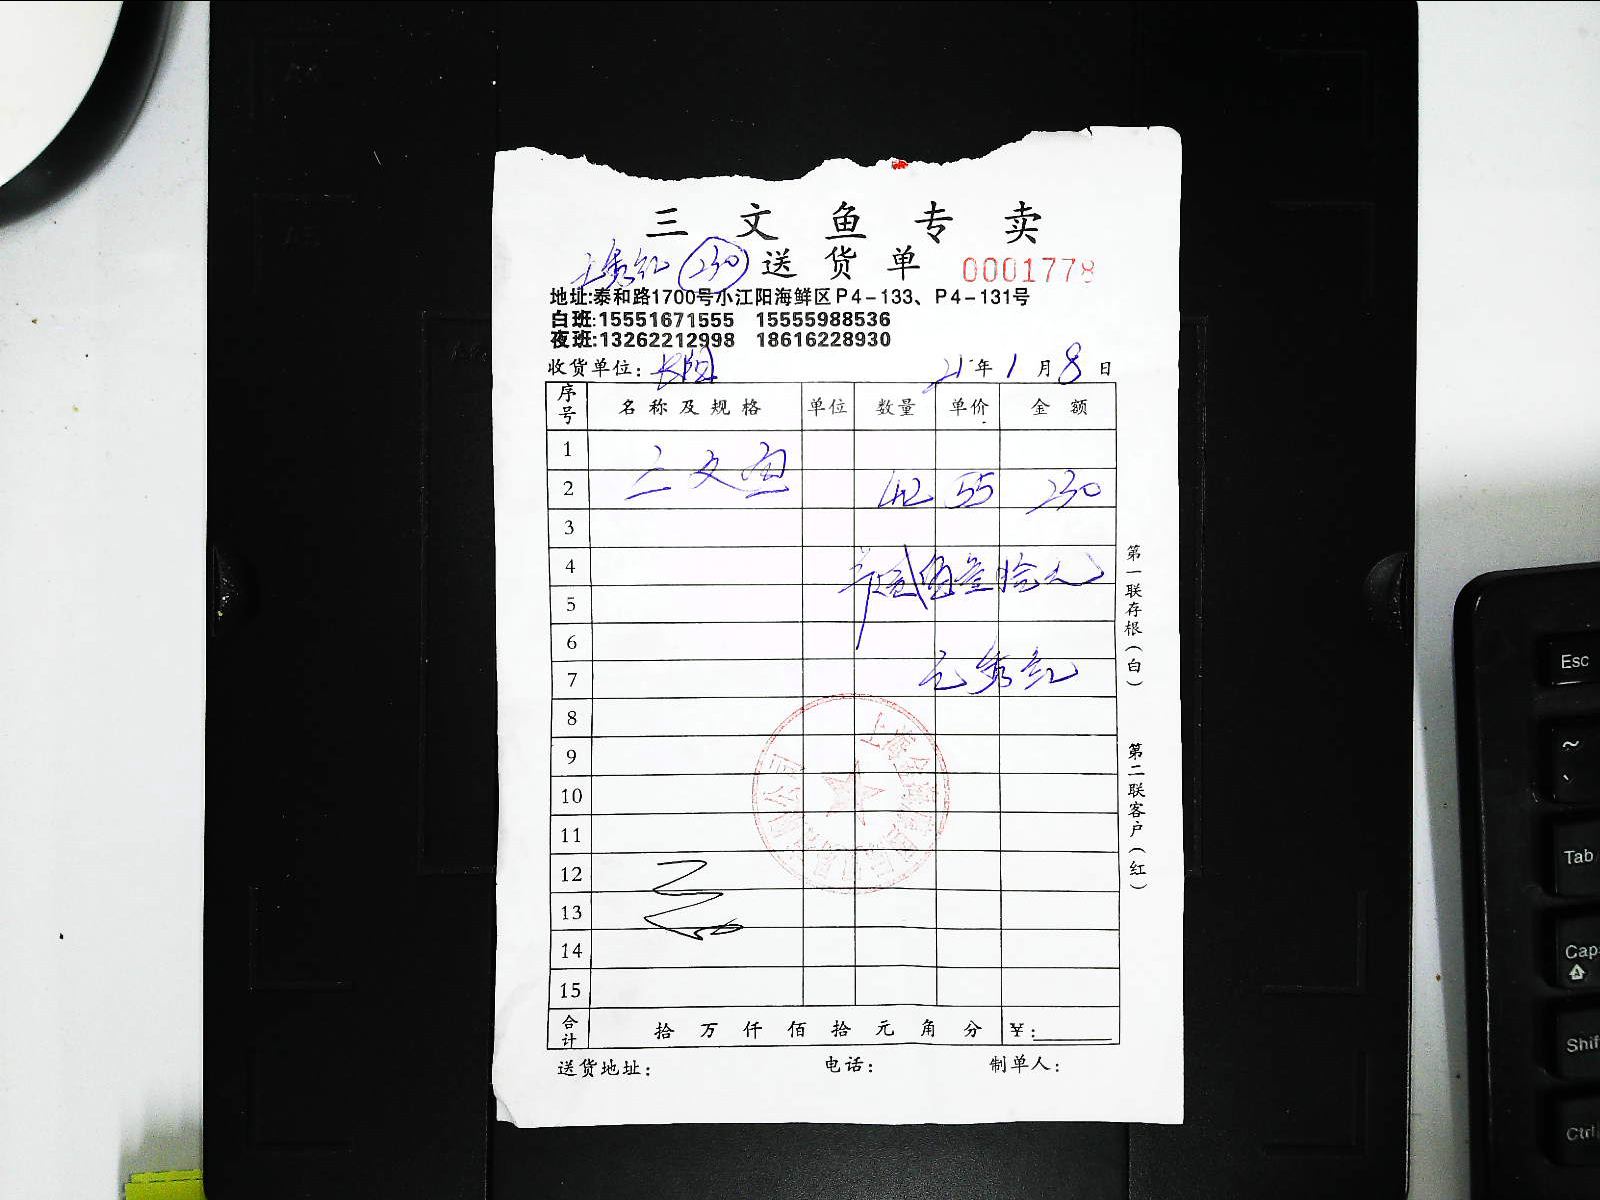 三文鱼专卖
230 送货单 0001778
地址:泰和路1700号小江阳海鲜区P4-133、P4-131号
白班:15551671555 15555988536
夜班:13262212998 18616228930
收货单位: 21年1月8日
序号 名称及规格 单位 数量 单价 金额
1 三文鱼
2 4.2 55 230
3
4
5
6
7
8
9
10
11
12
13
14
15
合计 拾万仟佰拾元角分 ¥:
送货地址: 电话: 制单人:
第一联存根(白)
第二联客户(红)
Esc
~
`
Tab
Cap
Shif
Ctrl